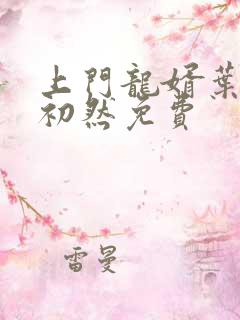 上門龍婿葉
初然免費
雷曼